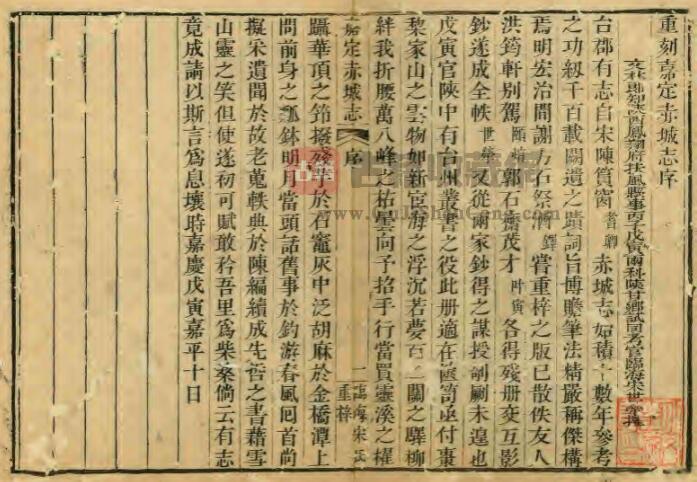 重刻嘉定赤城志序
文林郎知陝西鳳翔府扶風縣事丙子戊寅兩科陝甘鄉試同考官臨海宋世犖撰
台郡有志自宋陳篔窗耆卿赤城志始積十數年參考
之功紉千百載闕遺之蹟詞旨博贍筆法精嚴稱傑構
焉明宏治間謝方石祭酒鐸嘗重梓之版已散佚友人
洪筠軒別駕頤煊郭石齋茂才叶寅各得殘册交互影
鈔遂成全帙世犖又從兩家鈔得之謀授剞劂未遑也
戊寅官陝中有台州叢書之役此册適在篋笥亟付棗
棃家山之雲物如新宦海之浮沉若夢百二關之驛柳
絆我折腰萬八峰之祜雲向予招手行當買靈溪之櫂
嘉定赤城志 序 一 臨海宋氏重梓
躡華頂之筇撥殘芋於石竈灰中泛胡麻於金橋潭上
問前身之瓢鉢明月當頭話舊事於釣游春風回首尚
擬采遺聞於故老蒐軼典於陳編續成先哲之書藉雪
山靈之笑但使遂初可賦敢矜吾里爲柴桑倘云有志
竟成請以斯言爲息壤時嘉慶戊寅嘉平十日